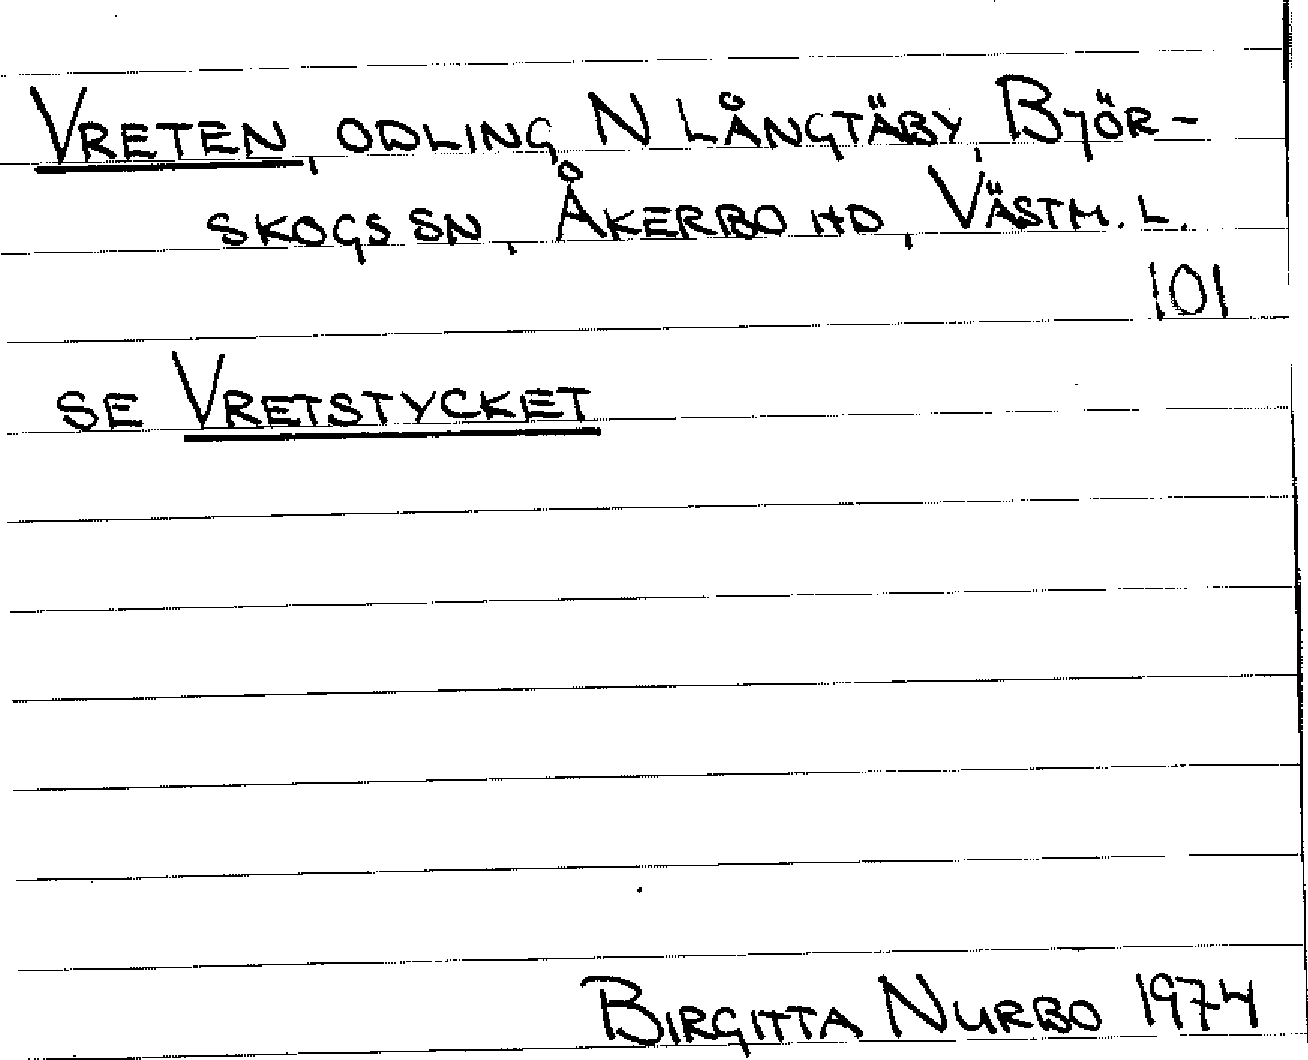 VRETEN, ODLING N LÅNGTÄBY, BJÖR-
SKOGS SN, ÅKERBO HD, VÄSTM. L.
101
SE VRETSTYCKET
BIRGITTA NURBO 1974